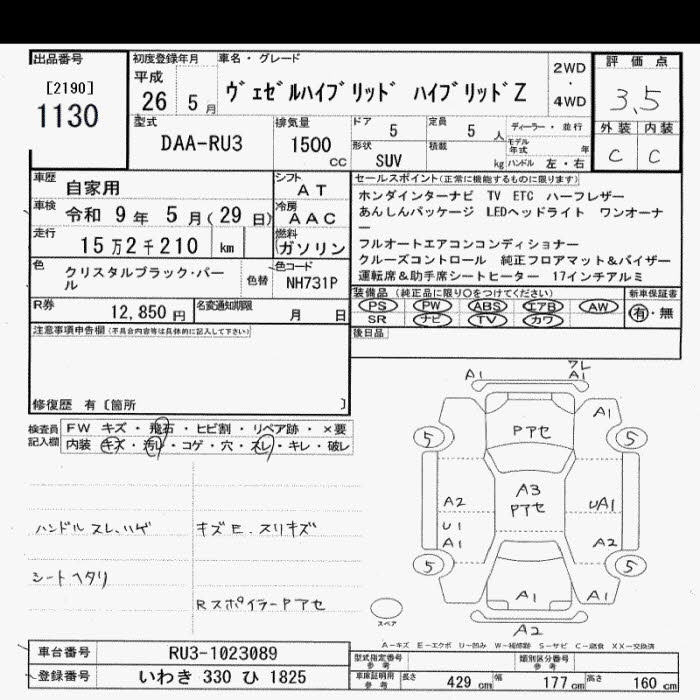 出品番号
[2190]
1130
初度登録年月
平成
26 5 月
車名・グレード
ヴェゼルハイブリッド ハイブリッドZ
2WD
・
4WD
評価点
3.5
外装 内装
C C
型式
DAA-RU3
排気量
1500
CC
ドア 5
定員 5 人
形状
SUV
積載 kg
ディーラー・並行
モデル年式 年
ハンドル 左・右
車歴 自家用
シフト AT
車検 令和 9年 5月(29日)
冷房 AAC
走行 15万2千210 km
燃料 ガソリン
色 クリスタルブラック・パール
色替
色コード
NH731P
R券 12,850円
名変通知期限 月 日
セールスポイント(正常に機能するものに限ります)
ホンダインターナビ TV ETC ハーフレザー
あんしんパッケージ LEDヘッドライト ワンオーナ
ー
フルオートエアコンコンディショナー
クルーズコントロール 純正フロアマット&バイザー
運転席&助手席シートヒーター 17インチアルミ
装備品(純正品に限り○をつけてください)
新車保証書
PS PW ABS エアB AW
SR ナビ TV カワ
有・無
後日品
注意事項申告欄(不具合内容等は具体的に記入して下さい)
修復歴 有〔箇所 〕
検査員
記入欄
FW キズ・飛石・ヒビ割・リペア跡・×要
内装 キズ・汚レ・コゲ・穴・スレ・キレ・破レ
ハンドル スレ、ハゲ
キズE.スリキズ
シートヘタリ
Rスポイラー Pアセ
A1
フレ
A1
A1
5
Pアセ
5
A2
A3
Pアセ
UA1
U1
A1
A2
5
5
A1
A1
A2
スペア
A-キズ E-エクボ U-凹み W-補修跡 S-サビ C-腐食 XX-交換済
車台番号 RU3-1023089
登録番号 いわき 330 ひ 1825
型式指定番号
参考
類別区分番号
参考
車庫証明用
参考
長さ 429 cm
幅 177 cm
高さ 160 cm